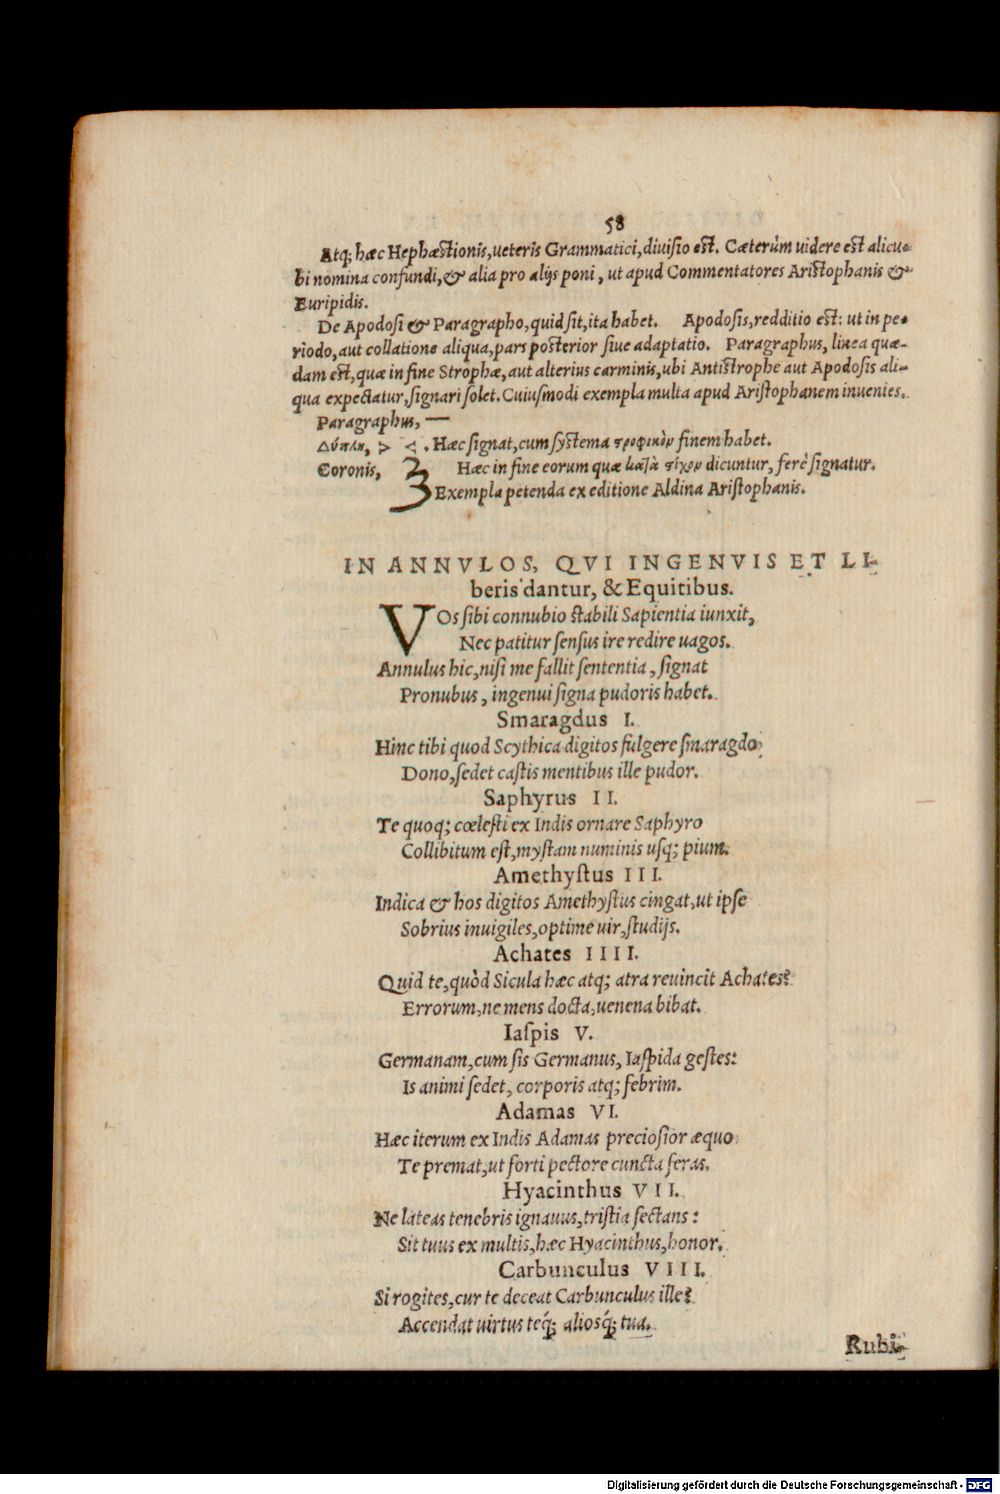 58
Atq; hæc Hephæstionis, ueteris Grammatici, diuisio est. Cæterùm uidere est alicu-
bi nomina confundi, & alia pro alijs poni, ut apud Commentatores Aristophanis &
Euripidis.
De Apodosi & Paragrapho, quid sit, ita habet. Apodosis, redditio est: ut in pe-
riodo, aut collatione aliqua, pars posterior siue adaptatio. Paragraphus, linea quæ-
dam est, quæ in fine Strophæ, aut alterius carminis, ubi Antistrophe aut Apodosis ali-
qua expectatur, signari solet. Cuiusmodi exempla multa apud Aristophanem inuenies.
Paragraphus, —
Δύπλη, > <. Hæc signat, cum systema στροφικὸν finem habet.
Coronis, Hæc in fine eorum quæ κατὰ στίχον dicuntur, ferè signatur.
Exempla petenda ex editione Aldina Aristophanis.
IN ANNVLOS, QVI INGENVIS ET LI-
beris dantur, & Equitibus.
VOs sibi connubio stabili Sapientia iunxit,
Nec patitur sensus ire redire uagos.
Annulus hic, nisi me fallit sententia, signat
Pronubus, ingenui signa pudoris habet.
Smaragdus I.
Hinc tibi quod Scythica digitos fulgere smaragdo
Dono, sedet castis mentibus ille pudor.
Saphyrus II.
Te quoq; cœlesti ex Indis ornare Saphyro
Collibitum est, mystam numinis usq; pium.
Amethystus III.
Indica & hos digitos Amethystus cingat, ut ipse
Sobrius inuigiles, optime uir, studijs.
Achates IIII.
Quid te, quòd Sicula hæc atq; atra reuincit Achates?
Errorum, ne mens docta, uenena bibat.
Iaspis V.
Germanam, cum sis Germanus, Iaspida gestes:
Is animi sedet, corporis atq; febrim.
Adamas VI.
Hæc iterum ex Indis Adamas preciosior æquo
Te premat, ut forti pectore cuncta feras.
Hyacinthus VII.
Ne lateas tenebris ignauus, tristia sectans:
Sit tuus ex multis, hæc Hyacinthus, honor.
Carbunculus VIII.
Si rogites, cur te deceat Carbunculus ille?
Accendat uirtus teq́; aliosq́; tua.
Rubi-
Digitalisierung gefördert durch die Deutsche Forschungsgemeinschaft - DFG